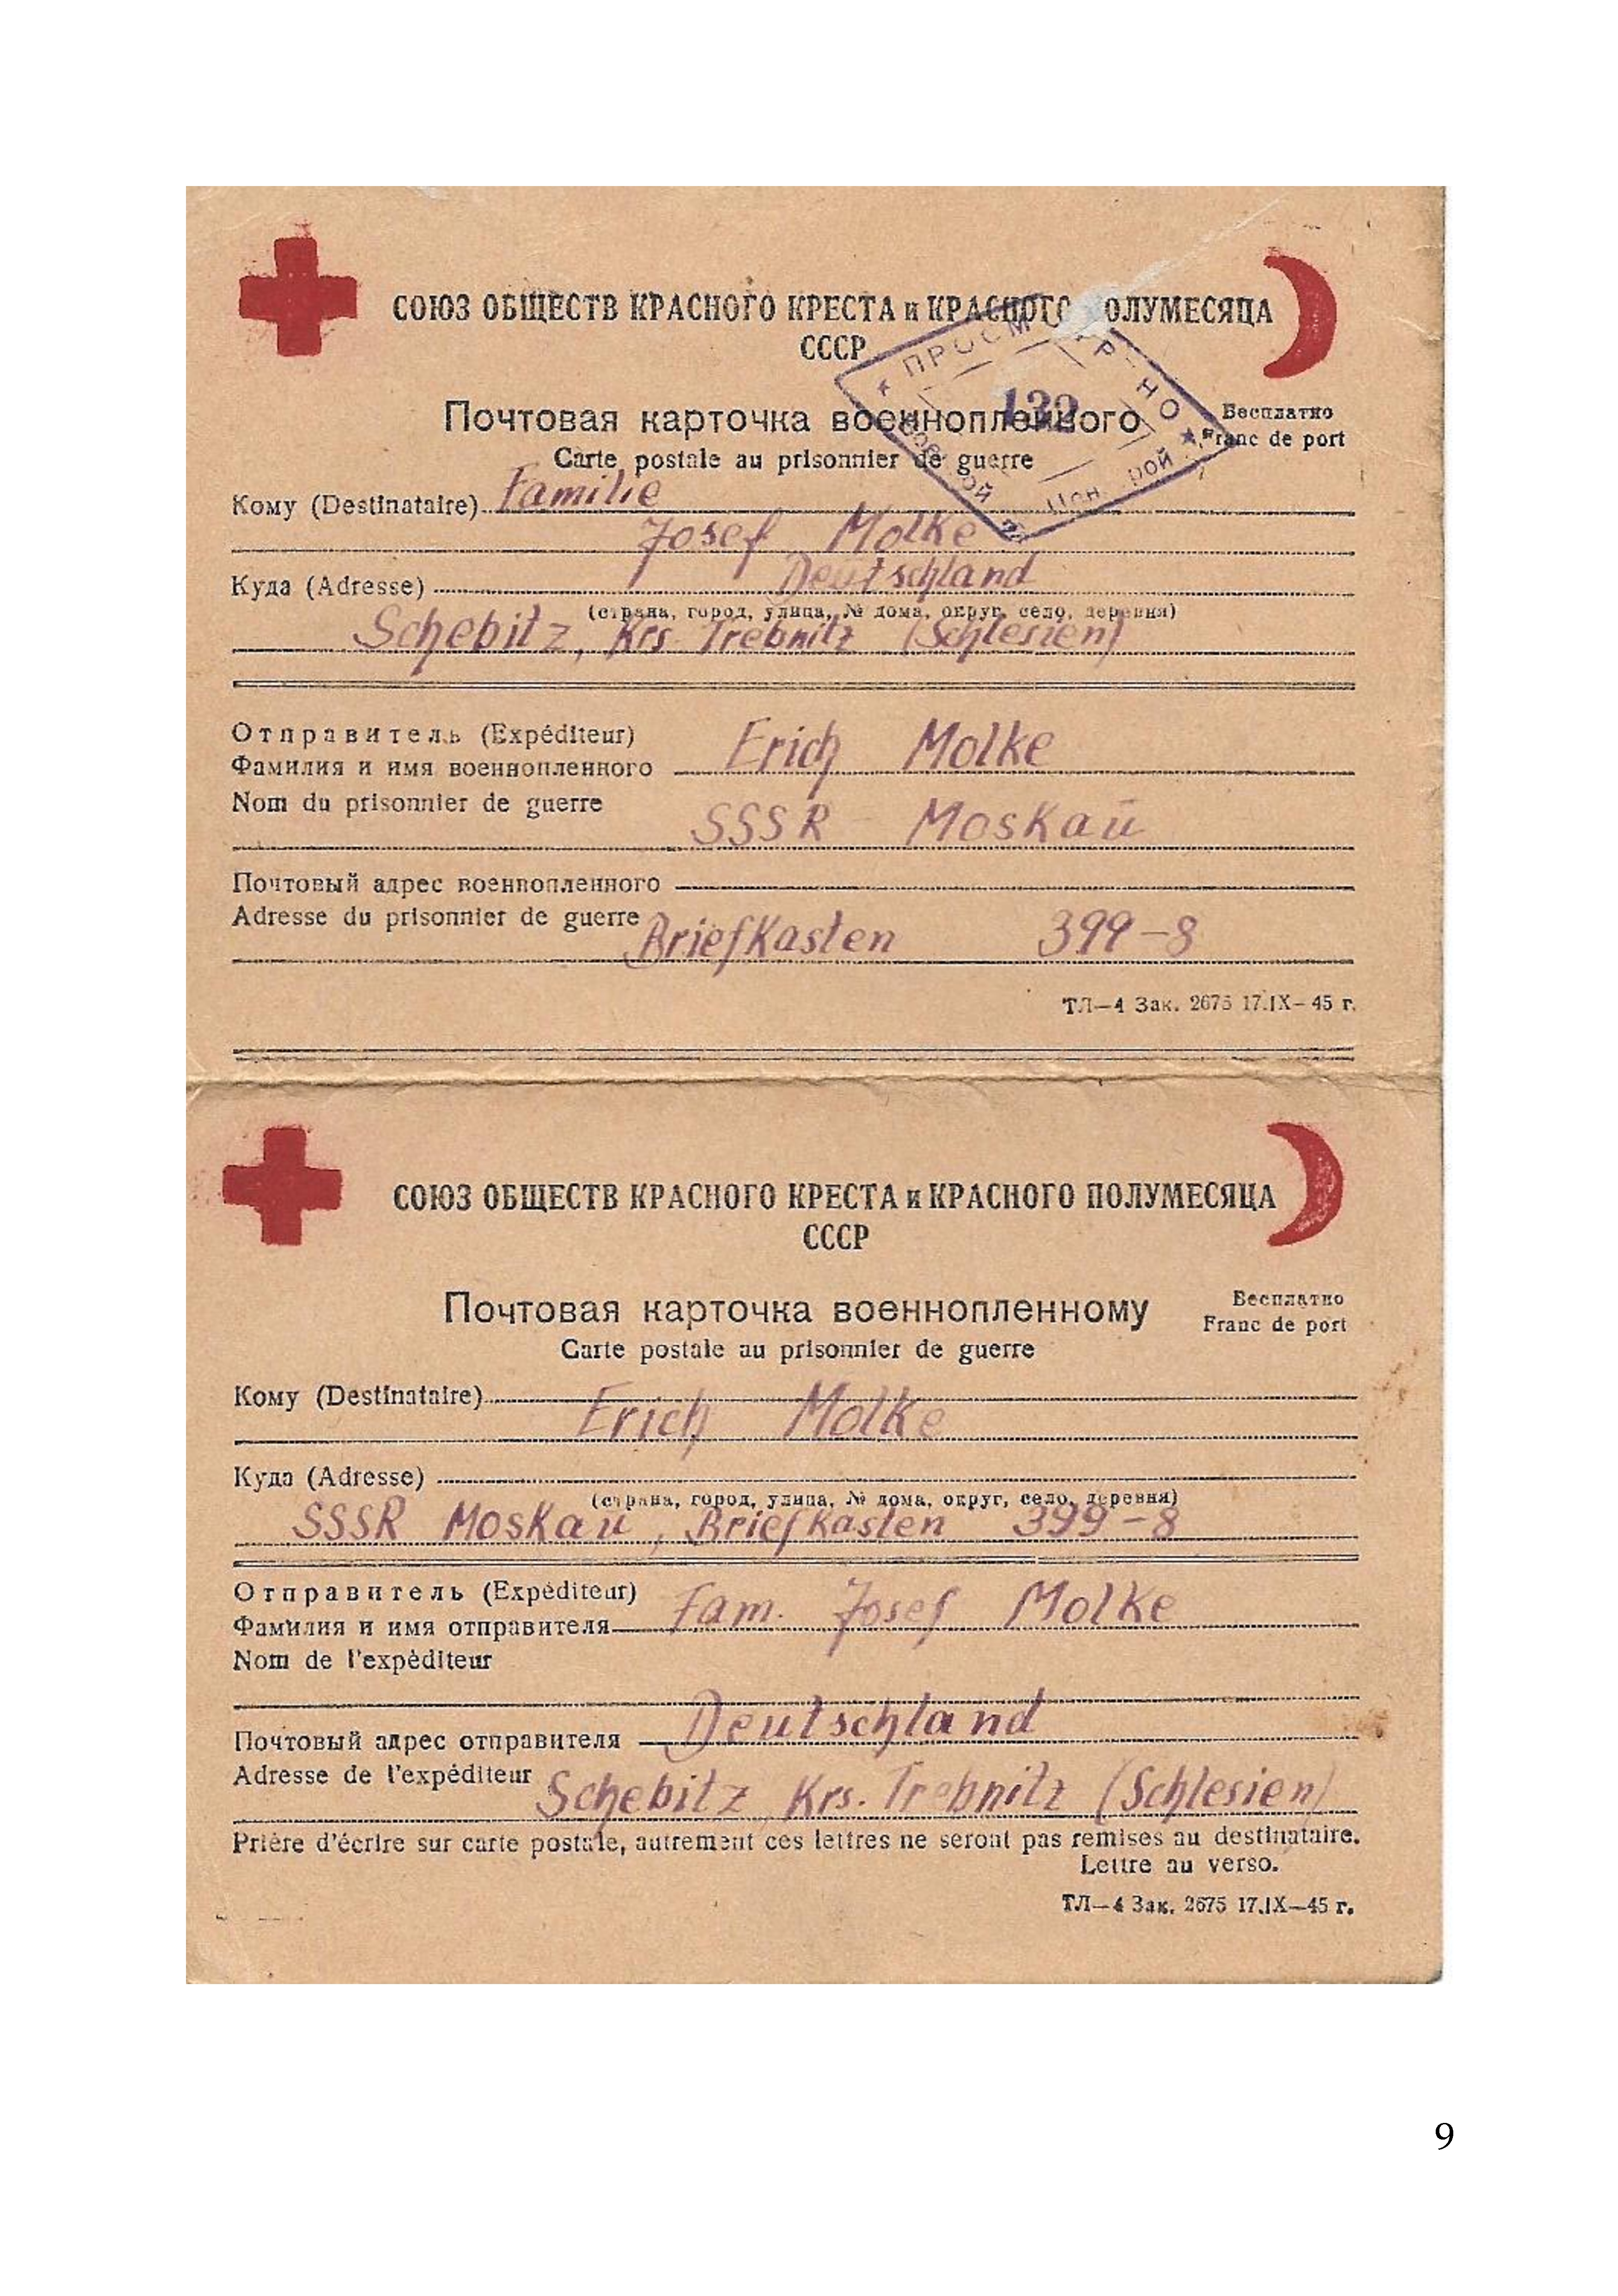 СОЮЗ ОБЩЕСТВ КРАСНОГО КРЕСТА и КРАСНОГО ПОЛУМЕСЯЦА
СССР
132
Почтовая карточка военнопленного
Бесплатно
Carte postale au prisonnier de guerre
Franc de port
Кому (Destinataire) Familie
Josef Molke
Куда (Adresse) Deutschland
(страна, город, улица, № дома, округ, село, деревня)
Schebitz, Krs. Trebnitz (Schlesien)
Отправитель (Expéditeur)
Фамилия и имя военнопленного Erich Molke
Nom du prisonnier de guerre
SSSR Moskau
Почтовый адрес военнопленного
Adresse du prisonnier de guerre
Briefkasten 399-8
ТЛ—4 Зак. 2675 17.IX—45 г.
СОЮЗ ОБЩЕСТВ КРАСНОГО КРЕСТА и КРАСНОГО ПОЛУМЕСЯЦА
СССР
Почтовая карточка военнопленному
Бесплатно
Carte postale au prisonnier de guerre
Franc de port
Кому (Destinataire)
Erich Molke
Куда (Adresse)
(страна, город, улица, № дома, округ, село, деревня)
SSSR Moskau, Briefkasten 399-8
Отправитель (Expéditeur)
Фамилия и имя отправителя Fam. Josef Molke
Nom de l'expéditeur
Почтовый адрес отправителя Deutschland
Adresse de l'expéditeur
Schebitz Krs. Trebnitz (Schlesien)
Prière d'écrire sur carte postale, autrement ces lettres ne seront pas remises au destinataire.
Lettre au verso.
ТЛ—4 Зак. 2675 17.IX—45 г.
9